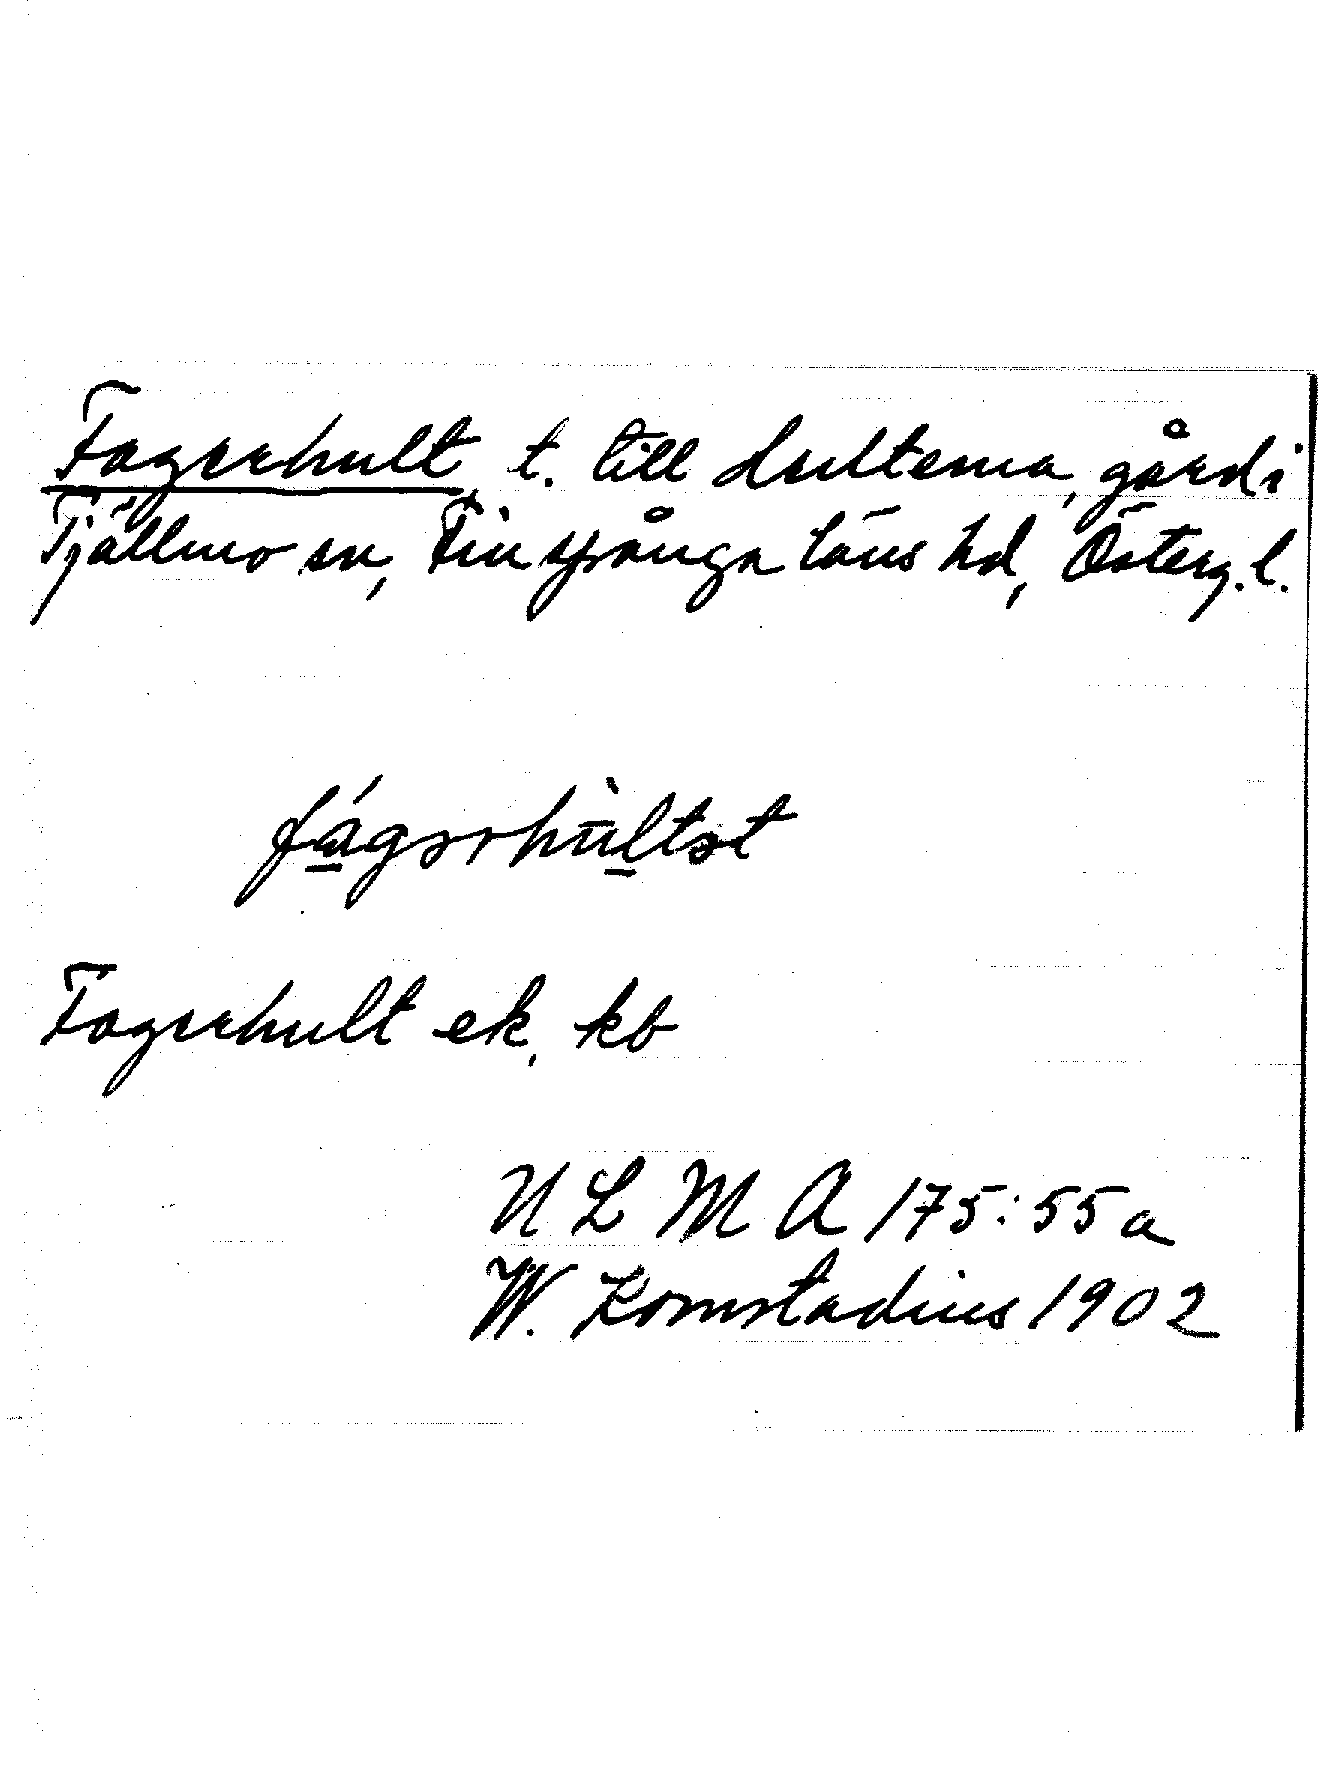 Fagerhult t. till Hultema, gård i
Tjällmo sn, Finspånga läns hd, Österg. l.
fágərhùltət
Fagerhult ek, kb
U L M A 175:55a
W. Kornstadius 1902